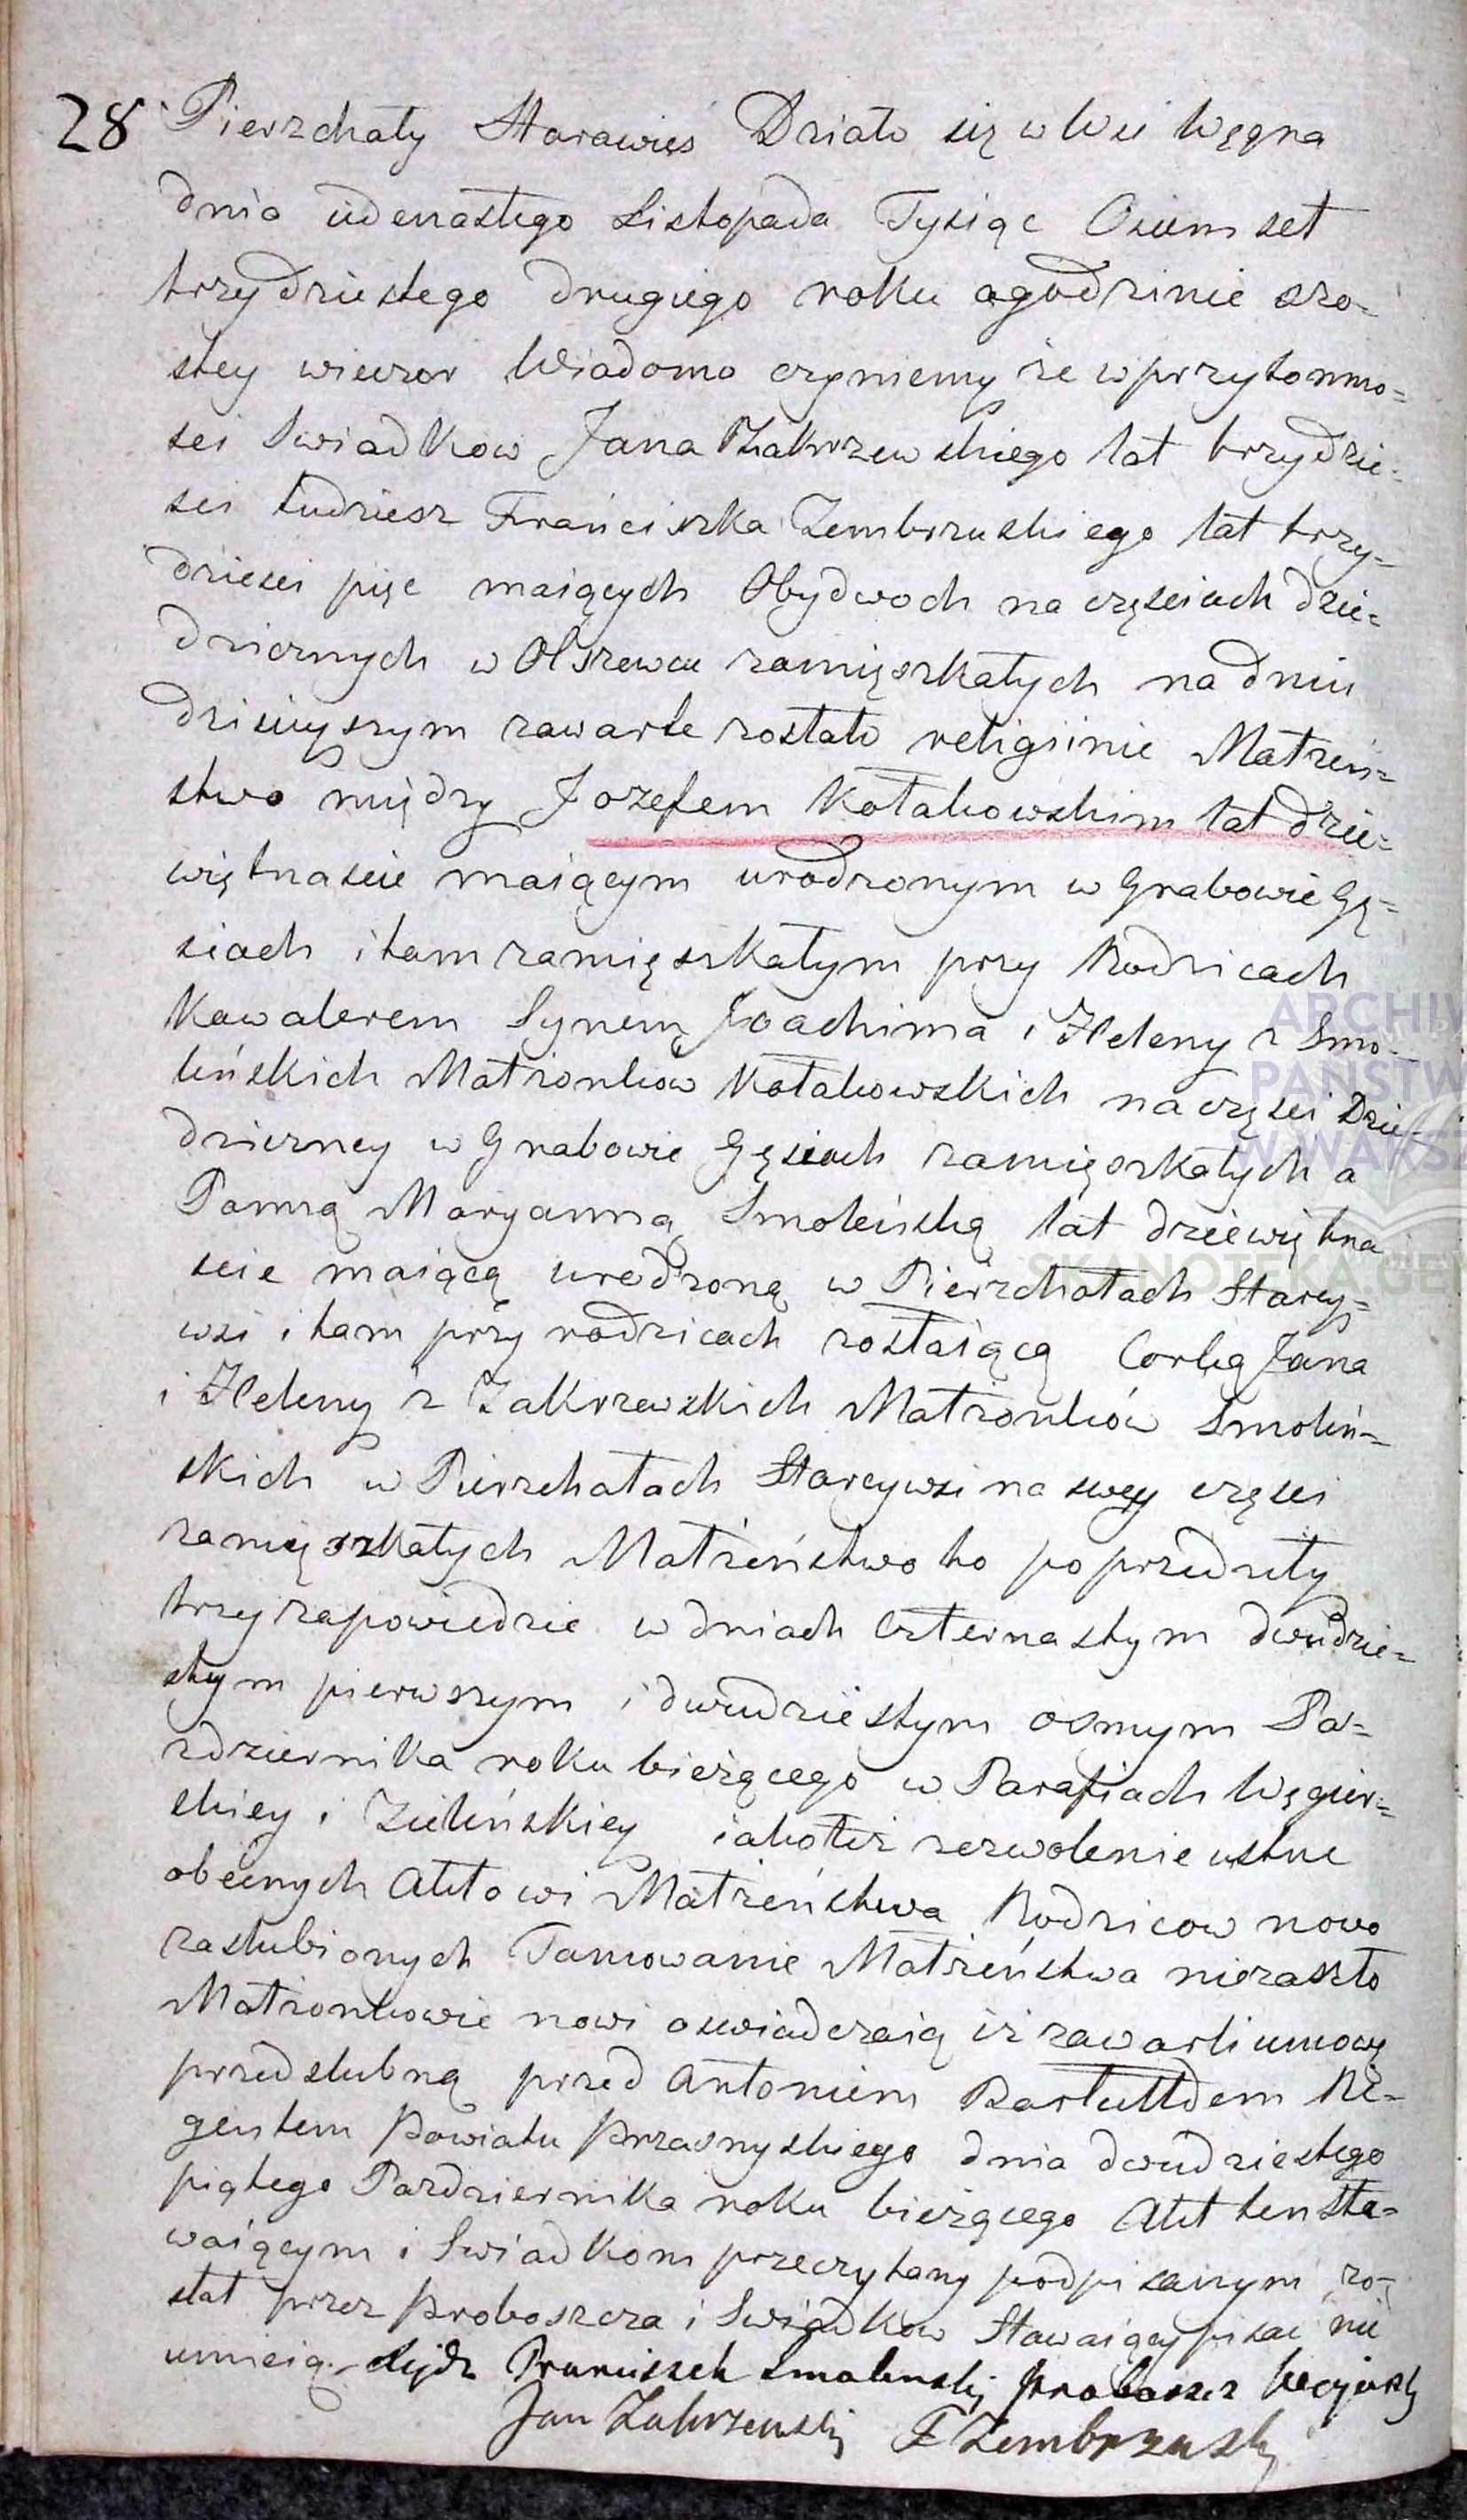 28 Pierzchały Starawieś Działo się w Wsi Węgra
dnia iedenastego Listopada Tysiąc Osiemset
trzydziestego drugiego roku ogodzinie szo-
stey wieczor Wiadomo czyniemy że w przytomno-
sci Swiadkow Jana Zakrzewskiego lat trzydzie-
sci tudziesz Franciszka Zembrzuskiego lat trzy-
dziesci pięc maiących Obydwoch na częsciach dzie-
dzicznych w Olszewcu zamięszkałych na dniu
dzisieyszym zawarte zostało religiinie Małżeń-
stwo między Jozefem Kołakowskim lat dzie-
więtnascie maiącym urodzonym w Grabowie Gę-
siach i tam zamięszkałym przy Rodzicach
Kawalerem Synem Joachima i Heleny z Smo-
leńskich Małżonków Kołakowskich na częsci Dzie-
dziczney w Grabowie Gęsiach zamięszkałych a
Panną Maryanną Smoleńską lat dziewiętna
scie maiącą urodzoną w Pierzchałach Starey-
wsi i tam przy rodzicach zostaiącą Corką Jana
i Heleny z Zakrzewskich Małżonków Smoleń-
skich w Pierzchałach Stareywsi na swey częsci
zamięszkałych Małżeństwo to poprzedzeły
trzy zapowiedzie w dniach Czternastym dwudzie-
stym pierwszym i dwudziestym osmym Pa-
zdziernika roku bieżącego w Parafiach Węgier-
skiey i Zieleńskiey iakoteż zezwolenie ustne
obecnych Aktowi Małżeństwa Rodzicow nowo
zaslubionych Tamowanie Małżeństwa niezaszło
Małżonkowie nowi oswiadczaią iż zawarli umowę
przedslubną przed Antoniem Re-
gentem Powiatu Przasnyskiego dnia dwudziestego
piątego Pazdziernika roku bieżącego Akt ten sta-
waiącym i Swiadkom przeczytany podpisanym zo-
stał przez Proboszcza i Swiadkow Stawaiący pisac nie
umieią. Xiądz Franciszek Smolenski Proboszcz Węgierski
Jan Zakrzewski F Zembrzuski
ARCHIW
PAŃSTW
W WARSZ
SKANOTEKA GEN